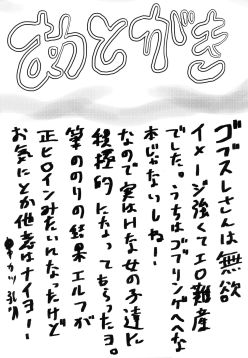 あとがき
ゴブスレさんは無欲
イメージ強くてエロ難産
でした。うちはゴブリンゲヘヘな
本じゃないしね！
なので実はHな女の子達に
積極的になってもらったヨ。
筆ののりの結果エルフが
正ヒロインみたいんなったけど
お気にとか他意はナイヨー！